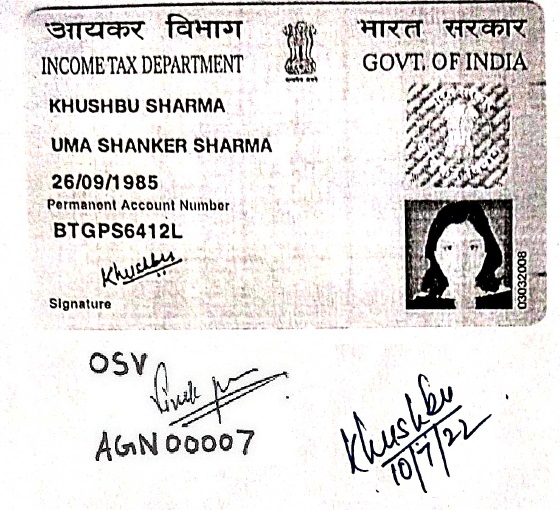 आयकर विभाग
भारत सरकार
INCOME TAX DEPARTMENT
GOVT. OF INDIA
KHUSHBU SHARMA
UMA SHANKER SHARMA
26/09/1985
Permanent Account Number
BTGPS6412L
Khushbu
Signature
03032008
OSV
AGN00007
Khushbu
10/7/22